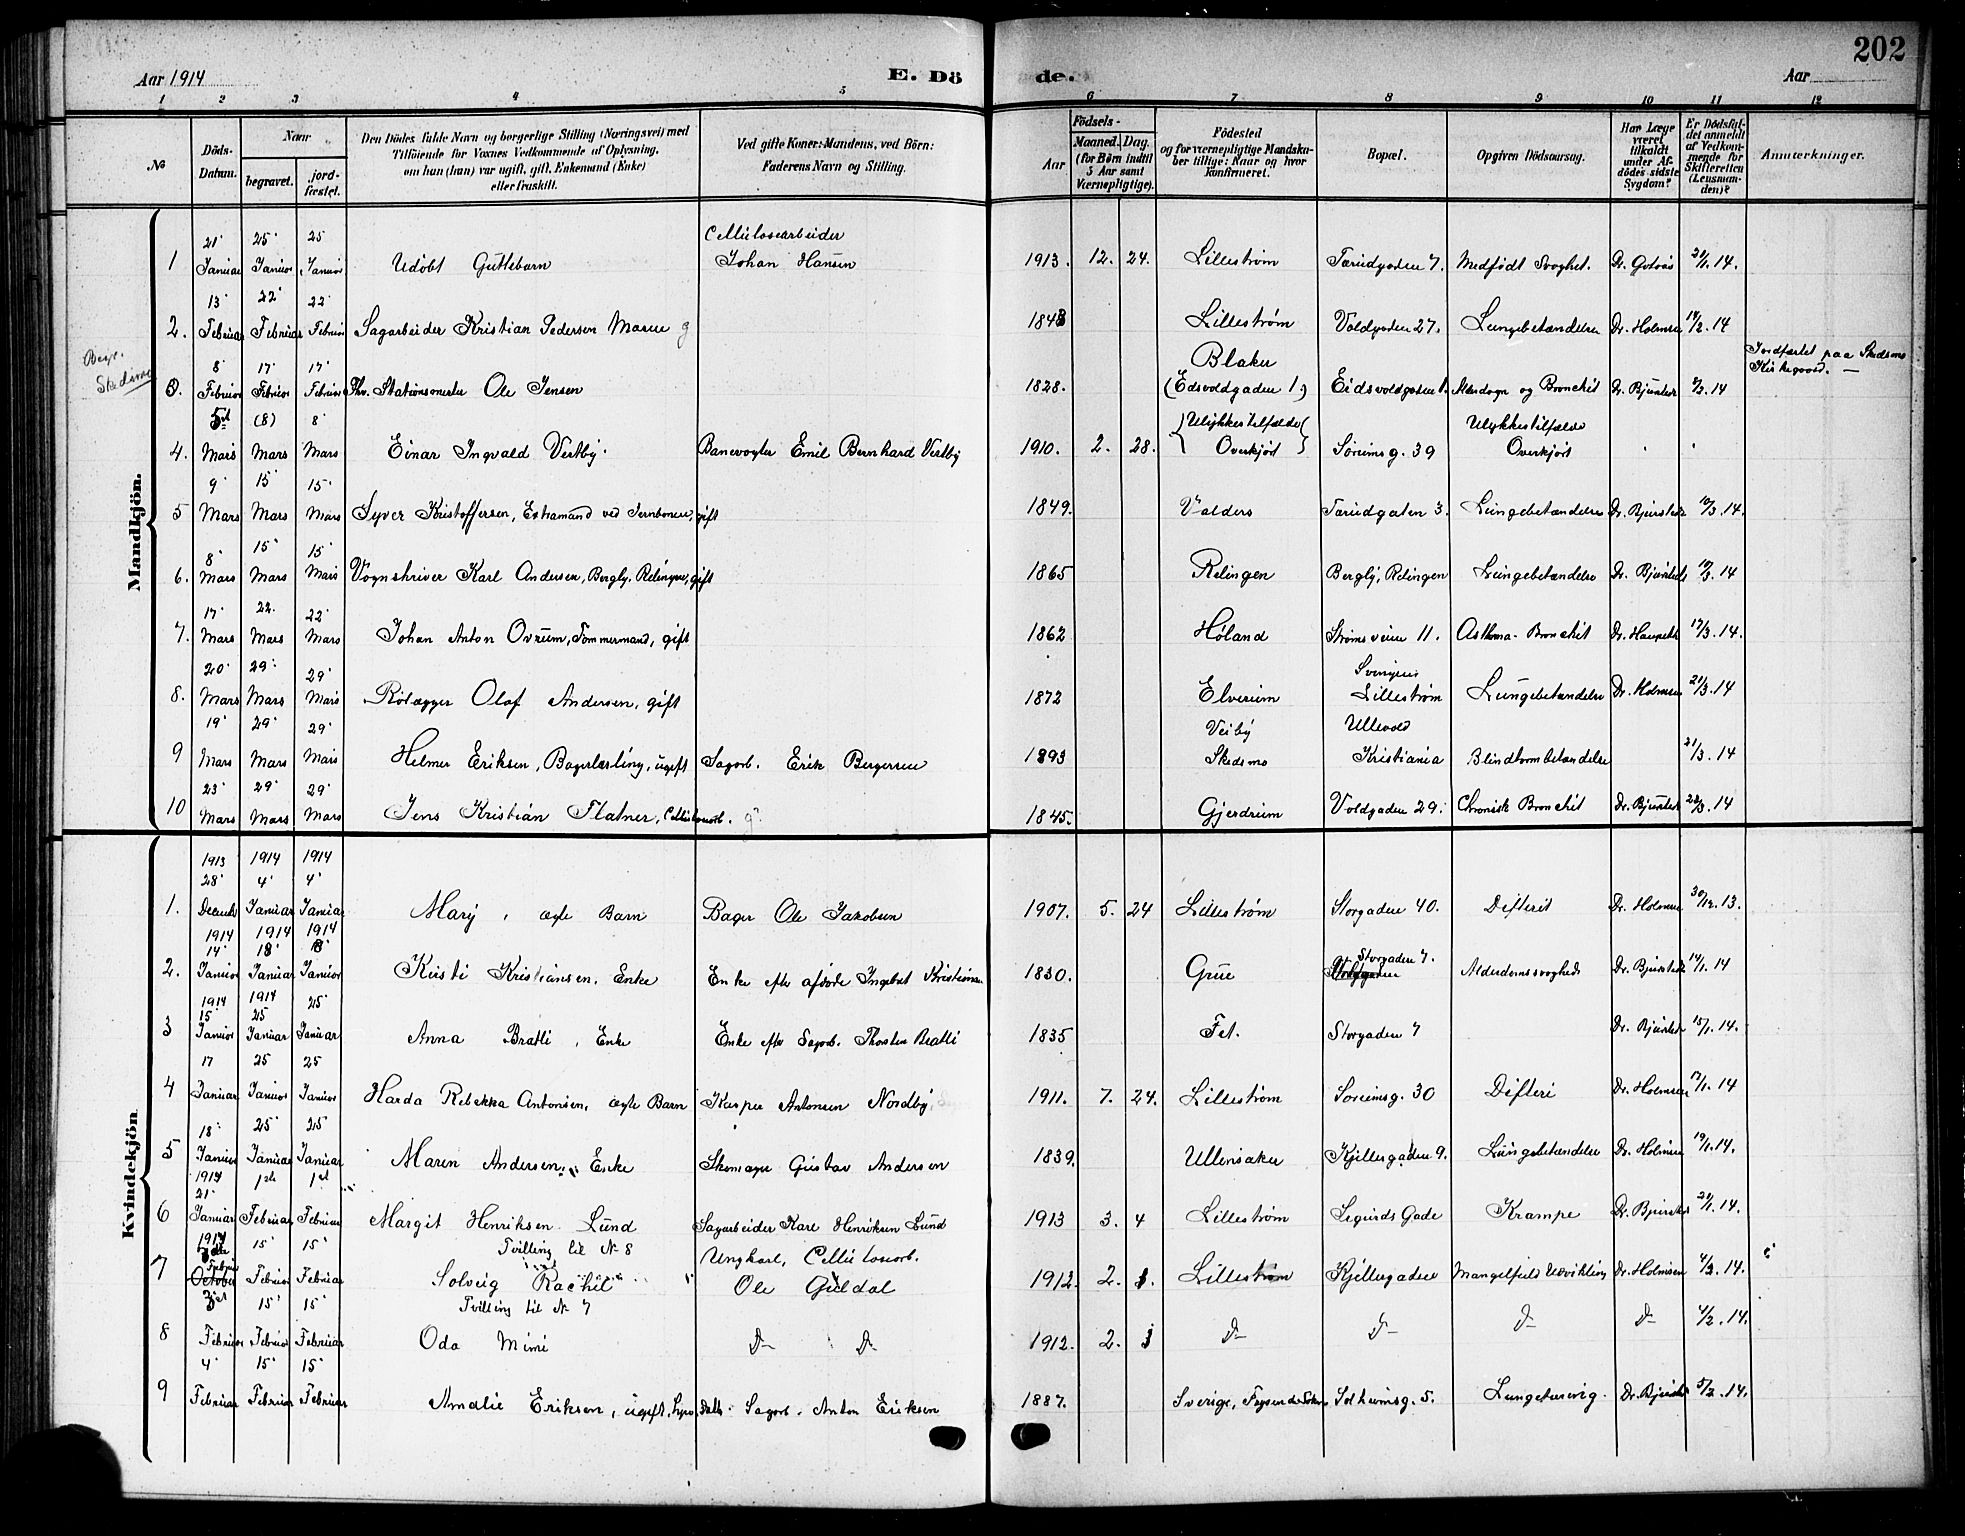 202
Aar 1914 E. Dö de. Aar
1 2 3 4 5 6 7 8 9 10 11 12
No
Döds-Datum.
Naar
begravet.
jordfæstet.
Den Dödes fulde Navn og borgerlige Stilling (Næringsvei) med
Tilföiende for Voxnes Vedkommende af Oplysning,
om han (hun) var ugift, gift, Enkemand (Enke)
eller fraskilt.
Ved gifte Koner: Mandens, ved Börn:
Faderens Navn og Stilling.
Födsels-
Aar
Maaned. Dag.
(for Börn indtil
5 Aar samt
Værnepligtige).
Födested
og for værnepligtige Mandskaber tillige: Naar og hvor
konfirmeret.
Bopæl.
Opgiven Dödsaarsag.
Har Læge
været
tilkaldt
under Afdödes sidste
Sygdom?
Er Dödsfaldet anmeldt
af Vedkommende for
Skifteretten
(Lensmanden)?
Anmærkninger.
Mandkjön.
1 21' Januar 25' Januar 25 Januar Udöbt Guttebarn Cellulosearbeider Johan Hansen 1913. 12. 24. Lilleström Tærudgaden 7. Medfödt Svaghet. Dr. 21/1.14.
2. 13' Februar 22' Februar 22' Februar Sagarbeider Kristian Pedersen g 1843 Lillestrøm Voldgaden 27. Lungebetændelse Dr. Holmsen 14/2.14
Begr. Skedsmo
3. 8' Februar 17' Februar 17' Februar Fhv. Stationsmester Ole Jensen 1828. Blaker (Edsvoldgaden 1.) Eidsvoldgaden 1. og Bronchit Dr. Bjurstedt 9/2.14 Jordfæstet paa Skedsmo Kirkegaard. —
4. 5te Mars (8) Mars 8' Mars Einar Ingvald Vestby. Banevogter Emil Bernhard Vestby 1910. 2. 28. (Ulykkestilfælde Overkjört) Sörumsg. 39 Ulykkestilfælde Overkjört
5 9' Mars 15' Mars 15' Mars Syver Kristoffersen, Extramand ved Jernbanen, gift 1849. Valders Tærudgaten 3. Lungebetændelse Dr. Bjurstedt 10/3.14.
6. 8' Mars 15' Mars 15' Mars Vognskriver Karl Andersen, Bergly, Relingen, gift 1865 Relingen Bergly, Relingen Lungebetændelse Dr. Bjurstedt 10/3.14
7. 17' Mars 22. Mars 22' Mars Johan Anton Ovrum, Tömmermand, gift 1862 Höland Strömsveien 11. Asthma-Bronchit Dr. 17/3.14.
8. 20' Mars 29' Mars 29' Mars Rörlægger Olaf Andersen, gift 1872 Elverum Lilleström Lungebetændelse Dr. Holmsen 21/3.14
9 19' Mars 29' Mars 29' Mars Helmer Eriksen, Bagerlærling, ugift Sagarb. Erik Bergersen 1893 Veiby Skedsmo Ullevold Kristiania Blindtarmbetændelse 21/3.14
10 23' Mars 29' Mars 29' Mars Jens Kristian Flatner, Cellulosearb. g? 1845. Gjerdrum Voldgaden 29. Chronisk Bronchit Dr. Bjurstedt 24/3.14
Kvindekjön
1. 1913 28' Decmb 1914 4' Januar 1914 4' Januar Mary, ægte Barn Bager Ole Jakobsen 1907. 5. 24 Lilleström Storgaden 40. Difterit Dr. Holmsen 30/12.13.
2. 1914 14' Januar 1914 18' Januar 1914 18' Januar Kristi Kristiansen. Enke Enke efter afdöde Ingebret Kristiansen 1830. Grue Storgaden 7. Alderdomssvaghed Dr. Bjurstedt 14/1.14
3 1914 15' Januar 1914 25 Januar 25' Januar Anna Bratli, Enke Enke efter Sagarb. Thorsten Bratli 1835 Fet. Storgaden 7 Dr. Bjurstedt 15/1.14.
4 17 Januar 25 Januar 25 Januar Harda Rebekka Antonsen, ægte Barn Kasper Antonsen Nordby 1911. 7. 24. Lilleström Sörumsg. 30 Difteri Dr. Holmsen 17/1.14
5 18' Januar 25' Januar 25' Januar Maren Andersen, Enke Skomager Gustav Andersen 1839. Ullensaker Kjellergaden 9. Lungebetændelse Dr. Holmsen 19/1.14.
6 1914 21' Januar 1ste Februar 1st Februar Margit Henriksen Lund Sagarbeider Karl Henriksen Lund 1913 3. 4 Lilleström Sigurds Gade Krampe Dr. Bjurstedt 21/1.14.
7 1914 Februar 15' Februar 15' Februar Tvilling til No 8 Solveig Rachel Ungkarl, Cellulosearb. Ole Guldal 1912. 2. 1. Lilleström Kjellergaden Mangelfuld Udvikling Dr. Holmsen 4/2.14.
8 Februar 15' Februar 15' Februar Tvilling til No 7 Oda Mimi D- D- 1912. 2. D- D- D- D- 4/2.14.
9 4' Februar 15' Februar 15' Februar Amalie Eriksen, ugift Datter Sagarb. Anton Eriksen 1887. Sverige, Solheimsg. 5. Dr. Bjurstedt 5/2.14.